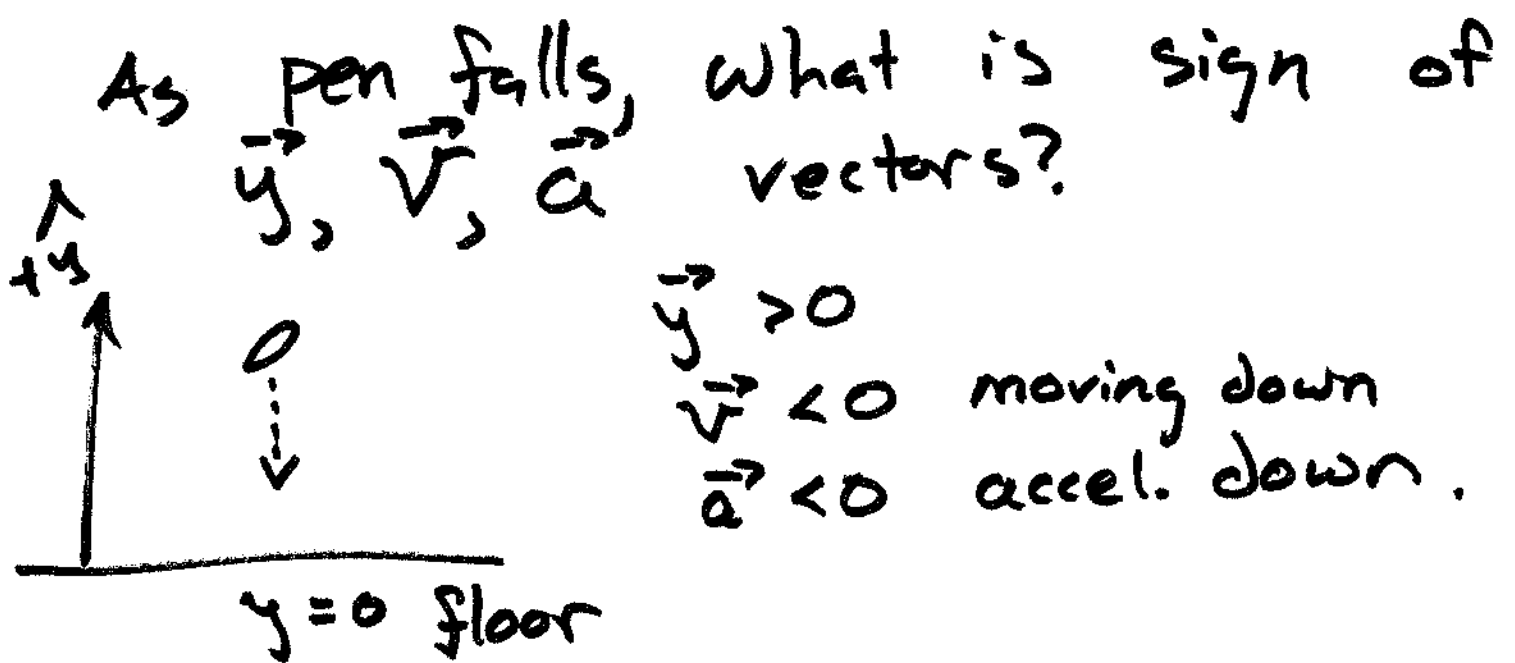 As pen falls, what is sign of
y⃗, v⃗, a⃗ vectors?
+ŷ
y⃗ >0
v⃗ <0 moving down
a⃗ <0 accel. down.
y=0 floor